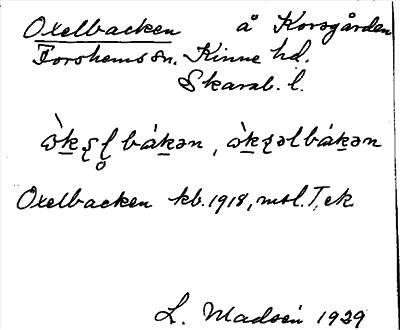 Oxelbacken å Korsgården
Forshems sn. Kinne hd.
Skarab. l.
ɔ̀kʂl̥ bákən, ɔ̀kʂəlbákən
Oxelbacken kb. 1918, msl. T, ek.
L. Madsén 1929